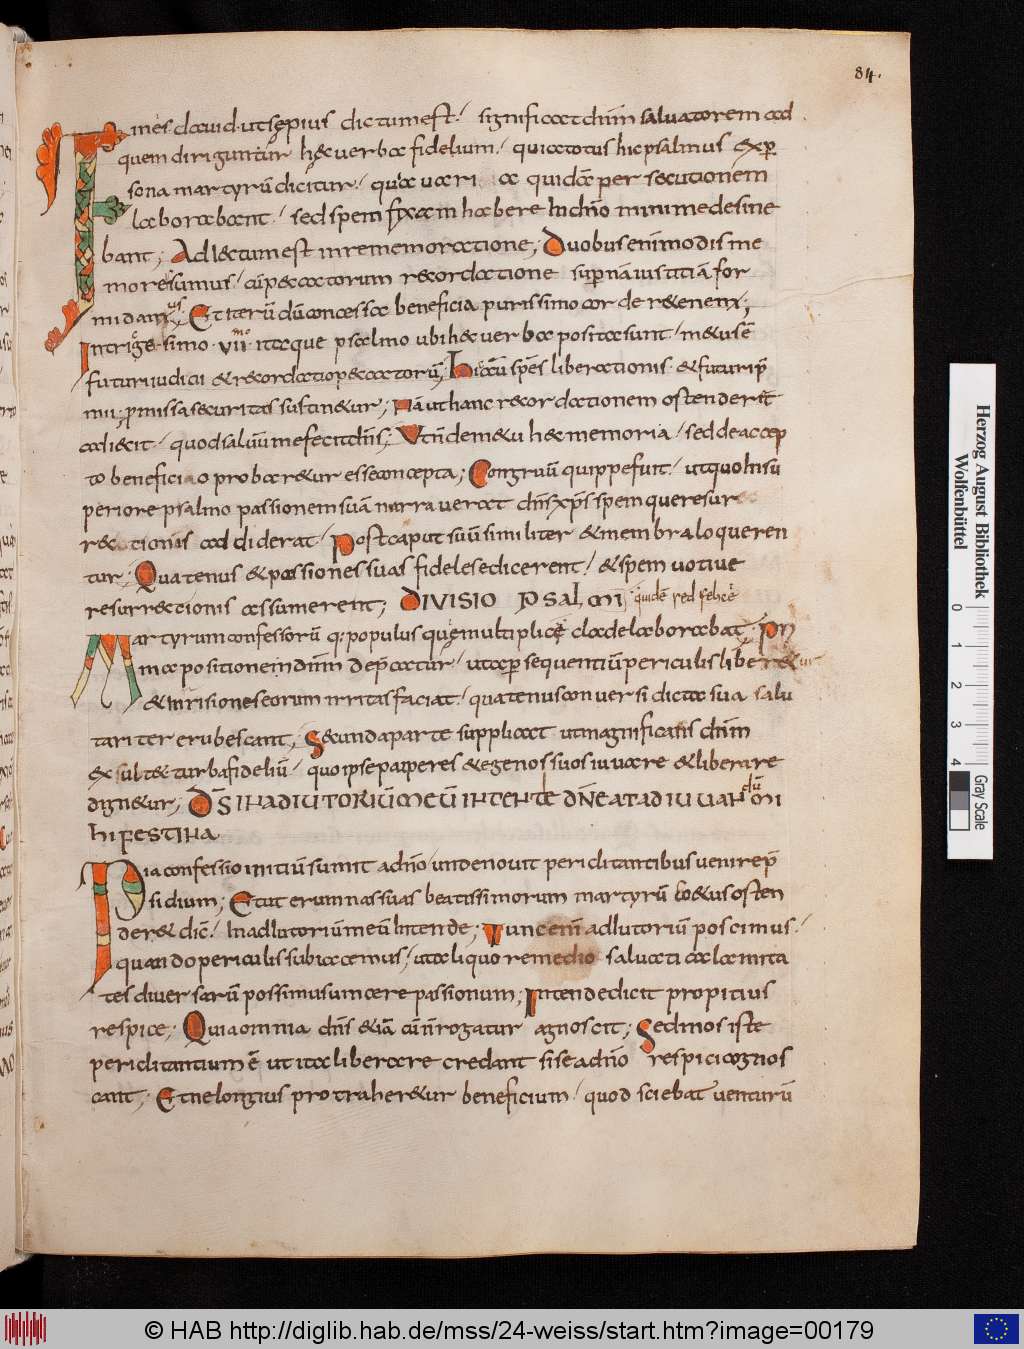 84.
Finis dauid · ut sępius dictum est / significat dn̄m saluatorem ad
quem diriguntur hęc uerba fidelium / quia totus hic psalmus ex ꝑ
sona martyrū dicitur / qui uari a quidē persecutionem
laborabant / sed spem fixam habere in dn̄o minime desine
bant; Adiectum est in rememoratione; Duobus enim modis me
mores sumus / cū peccatorum recordatione suꝑnam iustitiā for
midamus; Et iterū dū concessa beneficia purissimo corde retenem;
In trigesimo · vii mo itaque psalmo ubi hęc uerba posita sunt / metus ē
futuri iudicii & recordatio peccatorū; hic aūt spes liberationis · & futuri p̄
mii · ꝓmissa securitas sustinetur; Nā ut hanc recordationem ostenderet
adiecit / quod saluū me fecit dn̄s; Utn̄dem & u hec memoria / sed de accep
to beneficio probaretur esse concepta; Congruū quippe fuit / ut quo in su
periore psalmo passionem suā narrauerat dn̄s xp̄s spem quresur
rectionis addiderat / Post caput suū similiter & membra loqueren
tur; Quatenus & passiones suas fideles edicerent / & spem uotiue
resurrectionis assumerent; DIVISIO PSALMI
Martyrum confessorū q; populus quę multiplice clade laborabat · Prı
ma positione in dn̄m depcatur / ut a ꝑsequentiū periculis liberetur
& inrisiones eorum irritas faciat / quatenus conuersi dicta sua salu
tariter erubescant; Secunda parte supplicat ut magnificans dn̄m
exsultet turba fideliū / quo ipse pauperes & egenos suos iuuare & liberare
dignetur; DS̄ IN ADIUTORIŪ MEŪ INTENDE DN̄E AT ADIUUANdū MI
HI FESTINA
Pia confessio initiū sumit a dn̄o / unde nouit periclitantibus uenire p̄
sidium; Et ut erumnas suas beatissimorum martyrū coetus osten
deret dic̄ / In adiutoriū meū intende; Tunc enī adiutoriū poscimus /
quando periculis subiacemus / ut aliquo remedio saluati calamita
tes diuersarū possimus uincere passionum; Intende dicit propitius
respice; Quia omnia dn̄s & iā cū n̄ rogatur agnoscit; Sed mos iste
periclitantium ē ut ita liberare credant si se a dn̄o respici cognos
cant; Et ne longius protraheretur beneficium / quod sciebat uenturū
Herzog August Bibliothek
Wolfenbüttel
0 1 2 3 4
Gray Scale
© HAB http://diglib.hab.de/mss/24-weiss/start.htm?image=00179